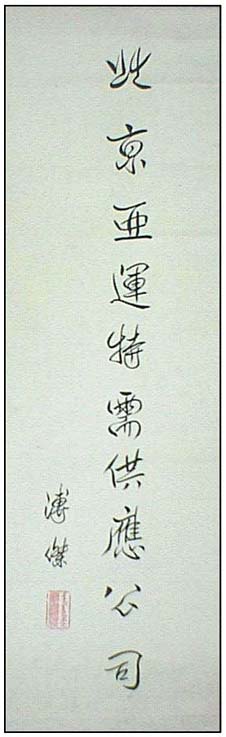 北京亞運特需供應公司
溥傑